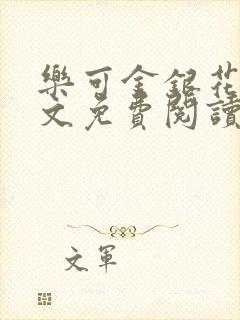 樂可金銀花
文免費閱讀
文軍